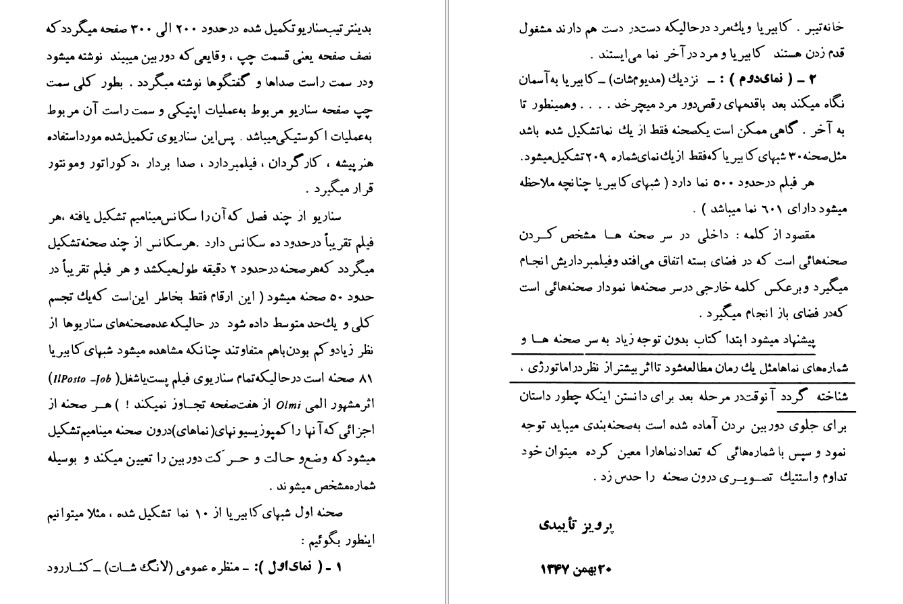 بدینترتیب‌سناریو تکمیل شده در حدود ۲۰۰ الی ۳۰۰ صفحه میگردد که
نصف صفحه یعنی قسمت چپ ، وقایعی که دوربین میبیند نوشته میشود
ودر سمت راست صداها و گفتگوها نوشته میگردد . بطور کلی سمت
چپ صفحه سناریو مربوط به‌عملیات اپتیکی و سمت راست آن مربوط
به‌عملیات اکوستیکی‌میباشد . پس‌این سناریوی تکمیل‌شده مورداستفاده
هنرپیشه ، کارگردان ، فیلمبردارد ، صدا بردار ،دکوراتور ومونتور
قرار میگیرد .
سناریو از چند فصل که‌آن‌را سکانس‌مینامیم تشکیل یافته ،هر
فیلم تقریباً درحدود ده سکانس دارد .هرسکانس از چند صحنه‌تشکیل
میگردد که‌هرصحنه درحدود ۲ دقیقه طول‌میکشد و هر فیلم تقریباً در
حدود ۵۰ صحنه میشود ( این ارقام فقط بخاطر این‌است که‌یك تجسم
کلی و یك‌حد متوسط داده شود در حالیکه عده‌صحنه‌های سناریوها از
نظر زیادوکم بودن‌باهم متفاوتند چنانکه مشاهده میشود شبهای‌کابیریا
۸۱ صحنه است درحالیکه‌تمام سناریوی فیلم پست‌یاشغل( IlPosto –Job)
اثرمشهور المی Olmi از هفت‌صفحه تجاوز نمیکند ! ) هـر صحنه از
اجزائی که‌آنها را کمپوزیسیونهای(نماهای)درون صحنه مینامیم‌تشکیل
میشودکه وضع‌و حالت و حـرکت دوربین را تعیین میکند و بوسیله
شماره‌مشخص میشوند .
صحنه اول شبهای‌کابیریا از ۱۰ نما تشکیل شده ، مثلا میتوانیم
اینطور بگوئیم :
۱ ـ ( نمای‌اول ): ـ منظره عمومی (لانگ شات) ـ کناررود
خانه‌تیبر . کابیریا و یك‌مرد درحالیکه دست‌در دست هم دارند مشغول
قدم زدن هستند کابیریا و مرد در آخر نما می‌ایستند .
۲ ـ ( نمای‌دوم ) : ـ نزدیك (مدیوم‌شات) ـ کابیریا به‌آسمان
نگاه میکند بعد باقدمهای رقص‌دور مرد میچرخد . . . . وهمینطور تا
به آخر . گاهی ممکن است یكصحنه فقط از یك نماتشکیل شده باشد
مثل‌صحنه۳۰ شبهای‌کابیریا که‌فقط ازیك‌نمای‌شماره ۲۰۹ تشکیل‌میشود.
هر فیلم درحدود ۵۰۰ نما دارد ( شبهای‌کابیریا چنانچه ملاحظه
میشود دارای ۶۰۱ نما میباشد ) .
مقصود از کلمه : داخلی در سر صحنه هـا مشخص کـردن
صحنه‌هائی است که در فضای بسته اتفاق می‌افتد وفیلمبرداریش انجام
میگیرد وبرعکس کلمه خارجی درسر صحنه‌ها نمودار صحنه‌هائی است
که‌در فضای باز انجام میگیرد .
پیشنهاد میشود ابتدا کتاب بدون توجه زیاد به سر صحنه هـا و
شماره‌های نماهامثل یك رمان مطالعه‌شود تااثر بیشتراز نظر‌دراماتورژی ،
شناخته گردد آنوقت‌در مرحله بعد برای دانستن اینکه چطور داستان
برای جلوی دوربین بردن آماده شده است به‌صحنه‌بندی میباید توجه
نمود و سپس با شماره‌هائی که تعدادنماهارا معین کرده میتوان خود
تداوم واستتیك تصـویـری درون صحنه را حدس زد .
پرویز تأییدی
۲۰ بهمن ۱۳۴۷